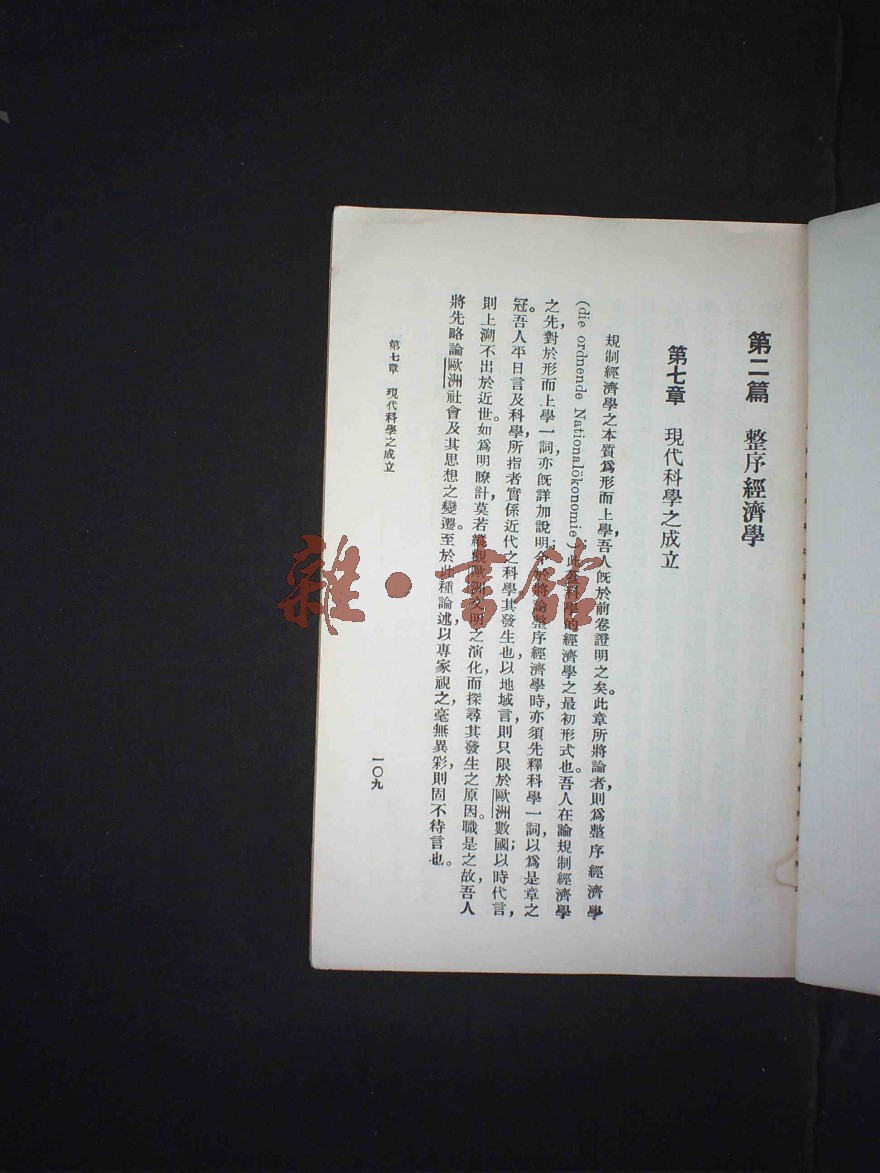 第二篇　整序經濟學
第七章　現代科學之成立
規制經濟學之本質爲形而上學，吾人旣於前卷證明之矣。此章所將論者，則爲整序經濟學
(die ordnende Nationalökonomie)此蓋科學的經濟學之最初形式也。吾人在論規制經濟學
之先，對於形而上學一詞，亦旣詳加說明；今於將論整序經濟學時，亦須先釋科學一詞，以爲是章之
冠。吾人平日言及科學，所指者實係近代之科學，其發生也，以地域言，則只限於歐洲數國；以時代言，
則上溯不出於近世。如爲明瞭計，莫若縱觀歐洲文明之演化，而探尋其發生之原因。職是之故，吾人
將先略論歐洲社會及其思想之變遷。至於此種論述，以專家視之，毫無異彩，則固不待言也。
第七章　現代科學之成立
一〇九
雜·書館